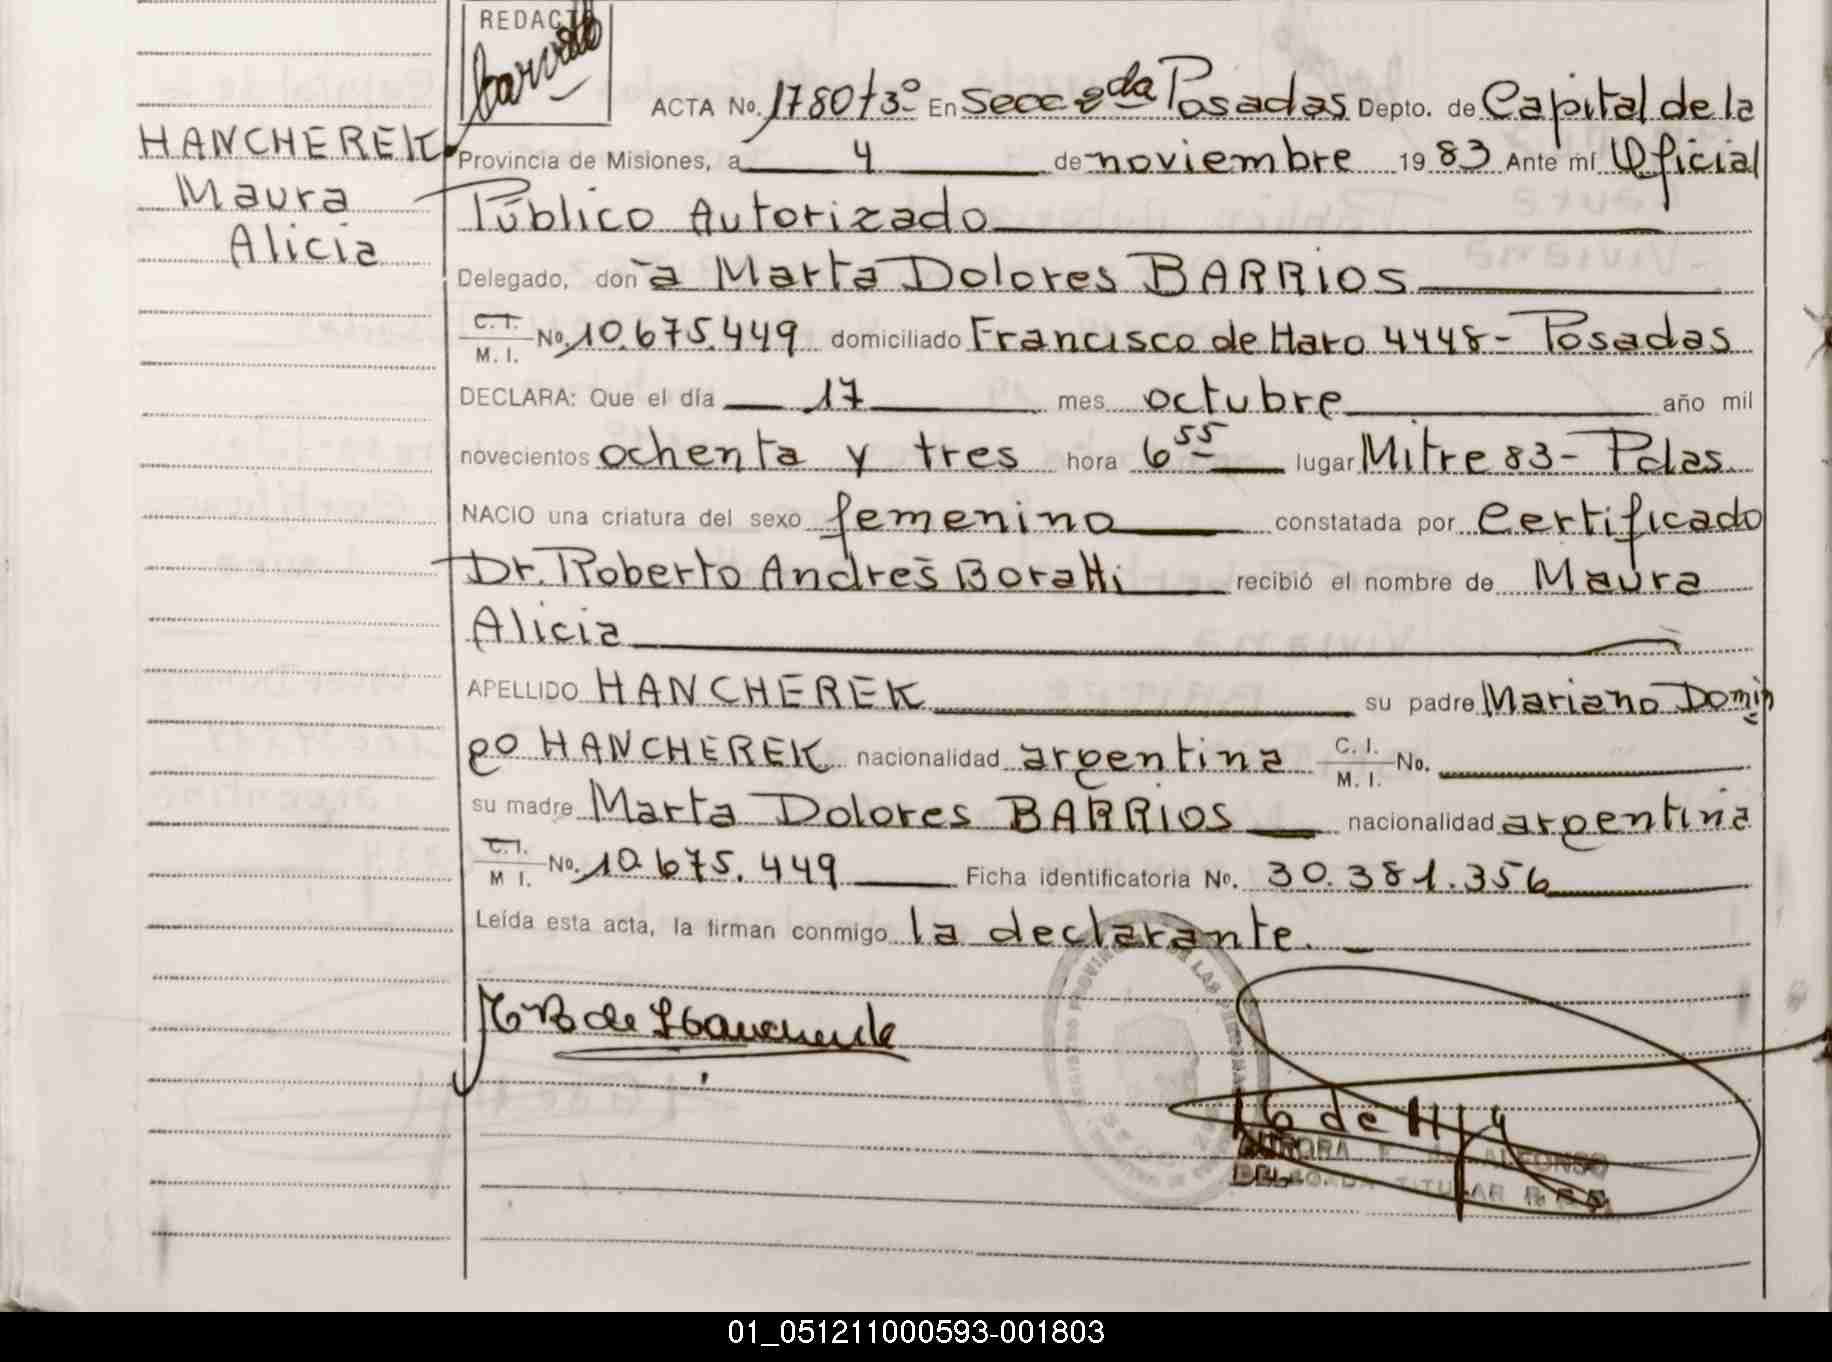 REDACTO
ACTA No. 1780 t3º En Secc 2da Posadas Depto. de Capital de la
HANCHEREK
Provincia de Misiones, a 4 de noviembre 1983 Ante mí Oficial
Maura
Público Autorizado
Alicia
Delegado, don a Marta Dolores BARRIOS
C.I. M.I. No. 10.675.449 domiciliado Francisco de Haro 4448 - Posadas
DECLARA: Que el día 17 mes octubre año mil
novecientos ochenta y tres hora 6 55 lugar Mitre 83 - Pdas.
NACIO una criatura del sexo femenino constatada por Certificado
Dr. Roberto Andrés Boratti recibió el nombre de Maura
Alicia
APELLIDO HANCHEREK su padre Mariano Domin
go HANCHEREK nacionalidad argentina C.I. M.I. No.
su madre Marta Dolores BARRIOS nacionalidad argentina
C.I. M I. No. 10.675.449 Ficha identificatoria No. 30.381.356
Leída esta acta, la firman conmigo la declarante.
AURORA ALFONSO
DELEGADA TITULAR
01_051211000593-001803